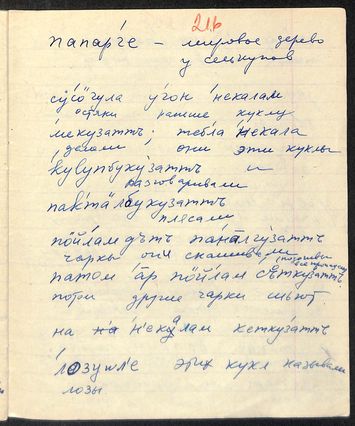 216
папар́ге – мировое дерево
у селькупов
су̇сӧгула у́гон не́калам
остяки раньше куклу
ме́куzаттъ; те́бла не́кала
делали; они эти куклы
ку́вупбуку́заттъ и
разговаривали
па́ктӓлбукузаттъ
плясали
по̄йлам дътъ па́налгу́заттъ
чарки они
патом а̄р пӧйлам съткузаттъ.
потом другие чарки шьют.
на не́калам кеткуза́ттъ
ло́зушле этих кукл называли
лозы.